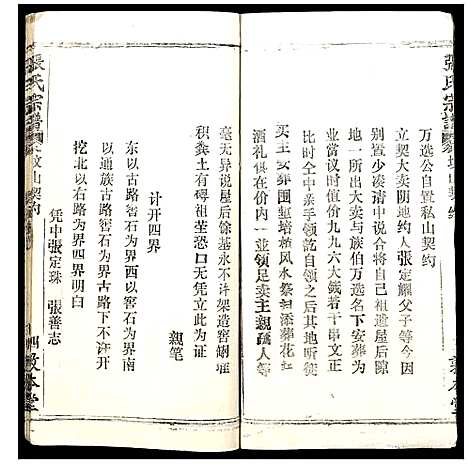 張氏宗譜
墳山契約
萬选公自置私山契約
立契大卖阴地约人張定耀父子等今因
別置少凑清中说合将自祖遗屋后隙
地一所出大卖与族伯万选名下安葬为
業當议时值价九九六大錢若干串文正
比时全中亲手领訖自领之后其地所听
买主安葬围堑培植风水祭扫添葬花红
酒礼俱在价内一並领足卖主親疏人等
毫无异说屋后馀基永不许架造窖厠堆
积粪土有碍祖茔恐口无凭立此为证
親笔
计开四界
东以古路窖石为界西以窖石为界南
以通族古窖石为界古路下不许开
挖北以右路为界四界明白
凭中張定珠　張善志
張氏宗譜
墳山契約
敦本堂